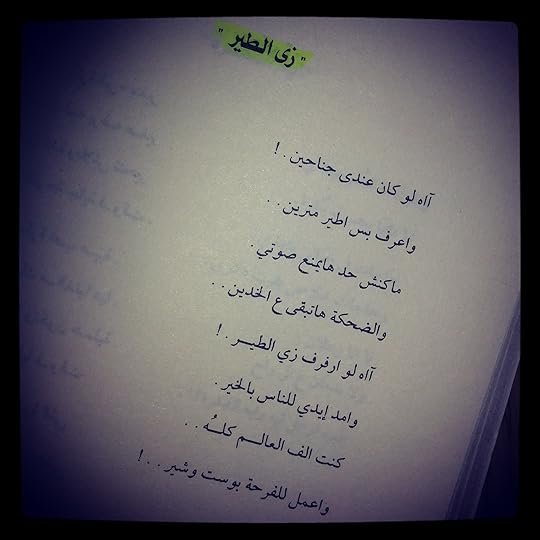 " زى الطير "
آاه لو كان عندى جناحين . !
واعرف بس اطير مترين . .
ماكنش حد هايمنع صوتي .
والضحكة هاتبقى ع الخدين . .
آاه لو ارفرف زي الطيــر . !
وامد إيدي للناس بالخير .
كنت الف العالــم كلــهُ . .
واعمل للفرحة بوست وشير . . !